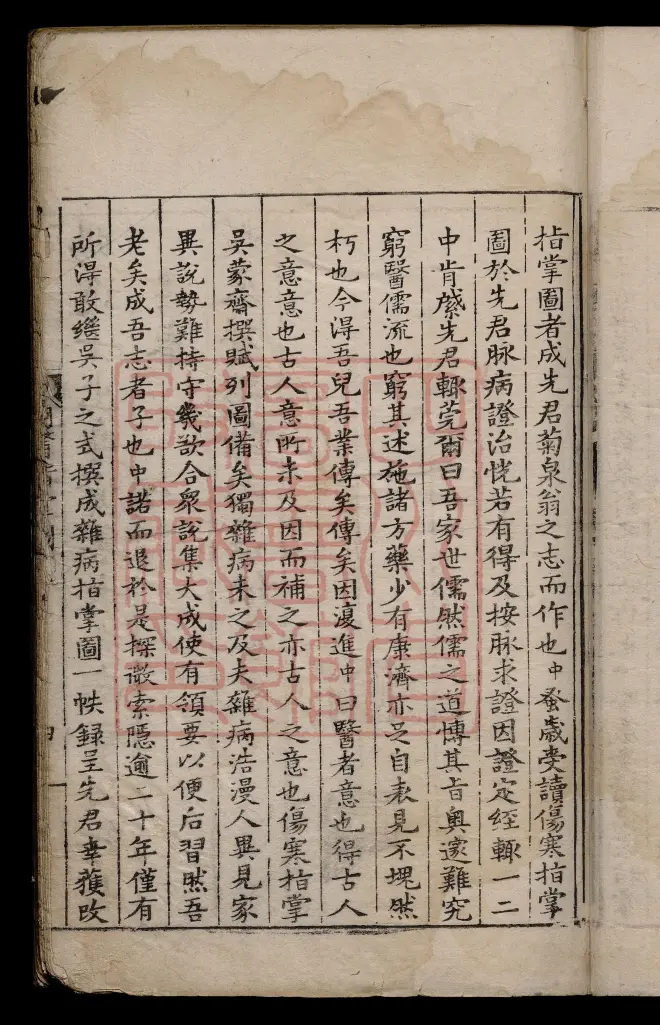 指掌圖者成先君菊泉翁之志而作也中蚤歲受讀傷寒指掌
圖於先君脉病證治恍若有得及按脉求證因證定經輙一二
中肯綮先君輙莞爾曰吾家世儒然儒之道慱其旨奥邃難究
窮醫儒流也窮其述施諸方藥少有康濟亦足自表見不塊然
朽也今得吾兒吾業傳矣傳矣因復進中曰醫者意也得古人
之意意也古人意所未及因而補之亦古人之意也傷寒指掌
吳蒙齋撰賦列圖備矣獨雜病未之及夫雜病浩漫人異見家
異說勢難持守幾欲合衆說集大成使有領要以便后習然吾
老矣成吾志者子也中諾而退於是探微索隱逾二十年僅有
所得敢繼吳子之式撰成雜病指掌圖一帙録呈先君幸獲改
四